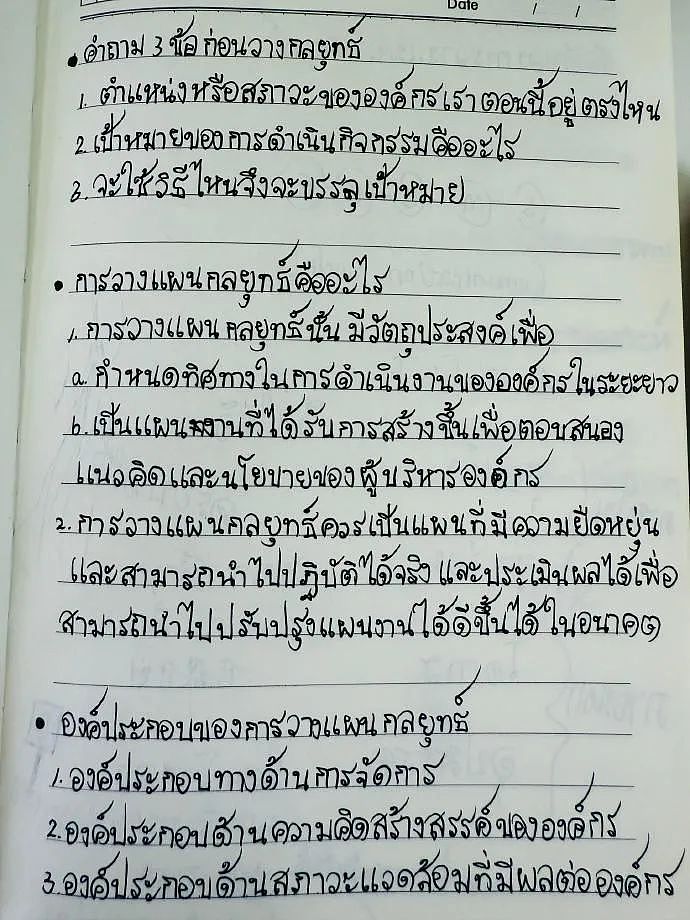 Date / /
• คำถาม 3 ข้อ ก่อนวางกลยุทธ์
1. ตำแหน่งหรือสภาวะขององค์กรเราตอนนี้อยู่ตรงไหน
2. เป้าหมายของการดำเนินกิจกรรมคืออะไร
3. จะใช้วิธีไหนจึงจะบรรลุเป้าหมาย
• การวางแผนกลยุทธ์คืออะไร
1. การวางแผนกลยุทธ์นั้น มีวัตถุประสงค์เพื่อ
a. กำหนดทิศทางในการดำเนินงานขององค์กรในระยะยาว
b. เป็นแผนงานที่ได้รับการสร้างขึ้นเพื่อตอบสนอง
แนวคิดและนโยบายของผู้บริหารองค์กร
2. การวางแผนกลยุทธ์ควรเป็นแผนที่มีความยืดหยุ่น
และสามารถนำไปปฏิบัติได้จริง และประเมินผลได้เพื่อ
สามารถนำไปปรับปรุงแผนงานได้ดีขึ้นได้ในอนาคต
• องค์ประกอบของการวางแผนกลยุทธ์
1. องค์ประกอบทางด้านการจัดการ
2. องค์ประกอบด้านความคิดสร้างสรรค์ขององค์กร
3. องค์ประกอบด้านสภาวะแวดล้อมที่มีผลต่อองค์กร